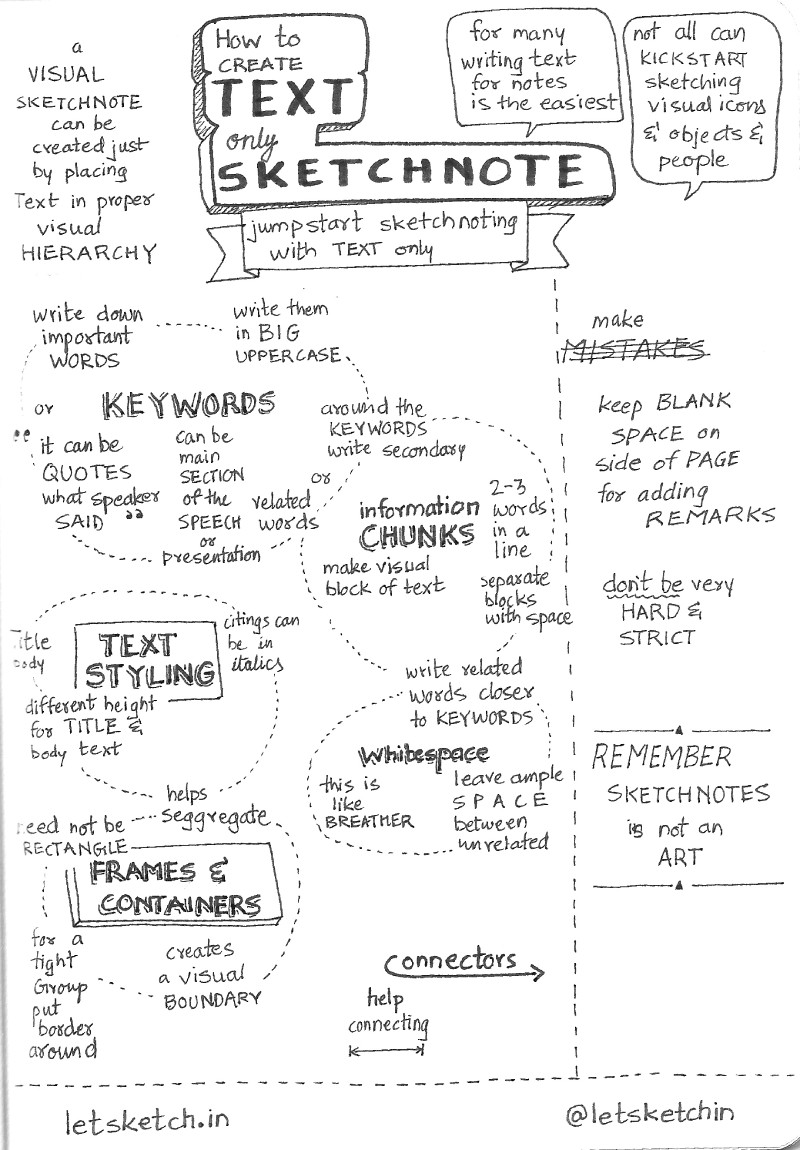 a
VISUAL
SKETCHNOTE
can be
created just
by placing
Text in proper
visual
HIERARCHY
How to
CREATE
TEXT
only
SKETCHNOTE
jumpstart sketchnoting
with TEXT only
for many
writing text
for notes
is the easiest
not all can
KICKSTART
sketching
visual icons
& objects &
people
write down
important
WORDS
write them
in BIG
UPPERCASE
or
KEYWORDS
“ it can be
QUOTES
what speaker
SAID ”
can be
main
SECTION
of the
SPEECH
or
presentation
related
words
or
around the
KEYWORDS
write secondary
information
CHUNKS
2-3
words
in a
line
make visual
block of text
separate
blocks
with space
write related
words closer
to KEYWORDS
Title
body
TEXT
STYLING
citings can
be in
italics
different height
for TITLE &
body text
helps
seggregate
Whitespace
this is
like
BREATHER
leave ample
SPACE
between
unrelated
need not be
RECTANGLE
FRAMES &
CONTAINERS
for a
tight
Group
put
border
around
creates
a visual
BOUNDARY
connectors
help
connecting
make
MISTAKES
keep BLANK
SPACE on
side of PAGE
for adding
REMARKS
don't be very
HARD &
STRICT
REMEMBER
SKETCHNOTES
is not an
ART
letsketch.in
@letsketchin